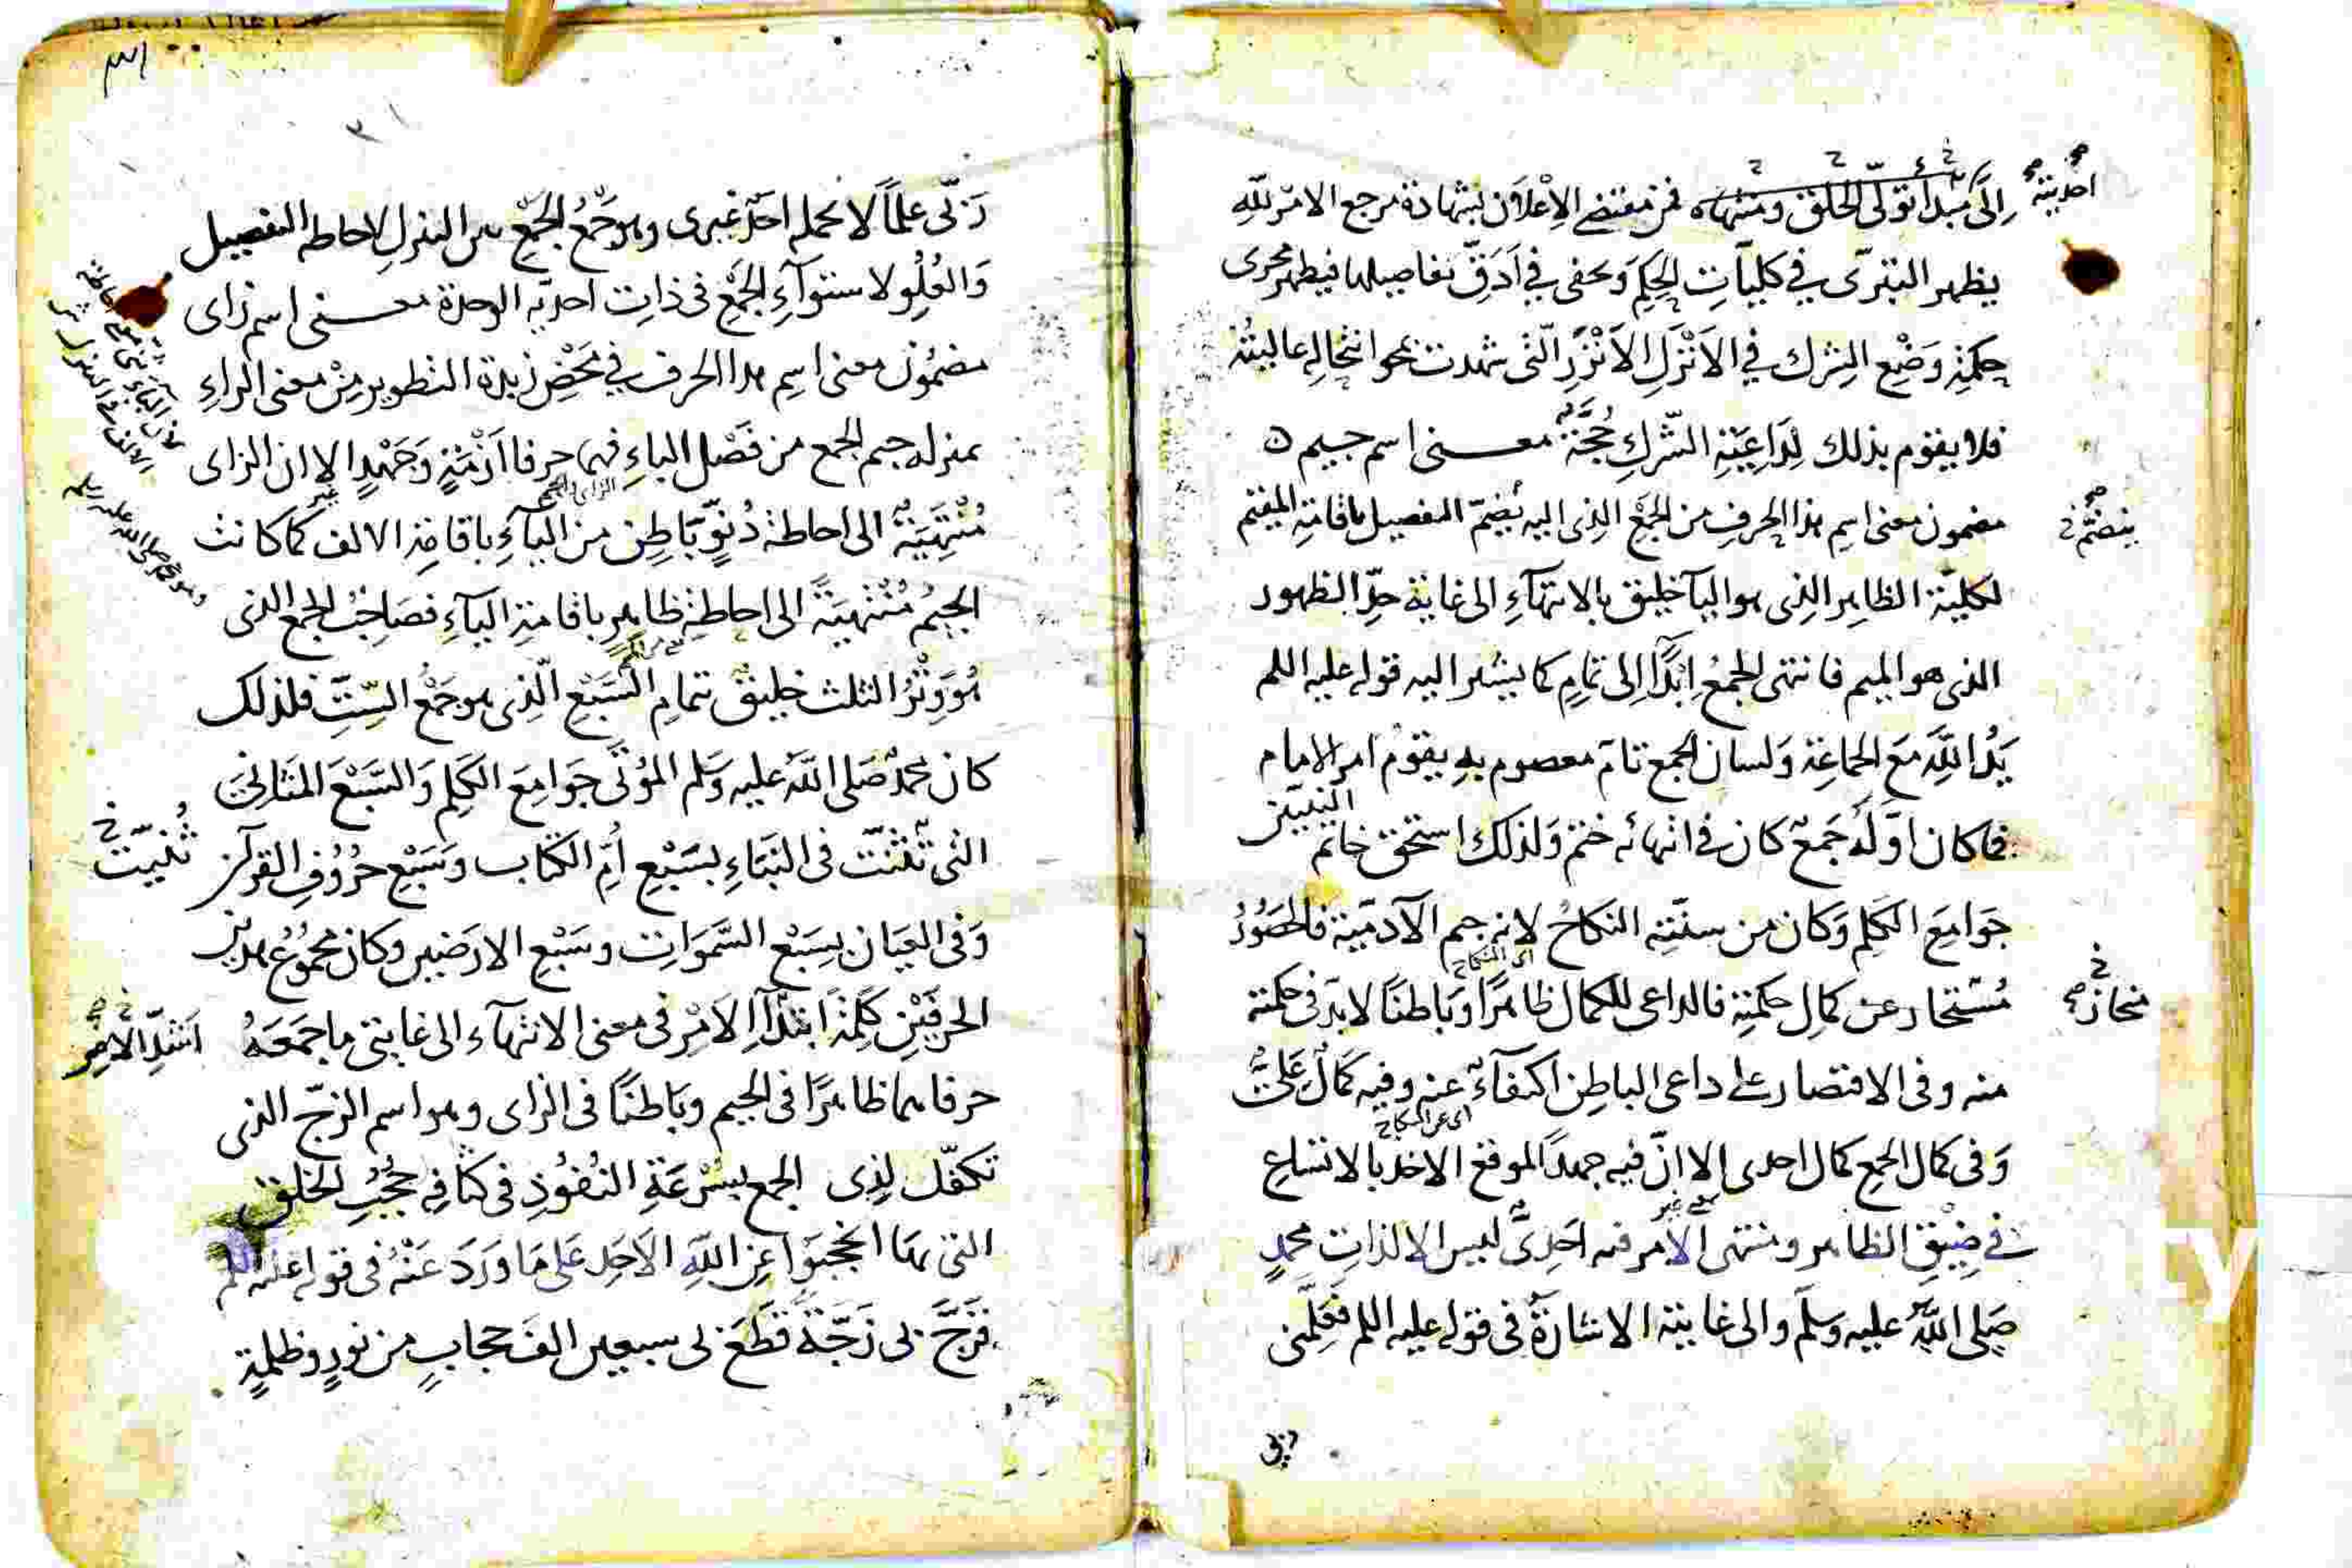 إِلَى مُبْدَأ تولّى الخلق ومنتهاه فمن مقتضى الإعلان بشهادة مرجع الامر لله
احديته
يظهر التبرّى في كليات الحِكَم وتخفى في اَدَقّ تفاصيلها فيظهر مجرى
حكمة وَضْع الشرك في الاَنْزَلِ الاَنْزَرِ الّتى شهدت بنحو انتحاله
فلا يقوم بذلك لِدَاعِيَةِ الشّرك حُجَّة معنى اسم جيم ه
مضمون معنى اسم هذا الحرف من الجَمْع الذِى اليه يُضمّ التفصيل باقامة الميم
ينضمّ
لكليّة الظاهر الذِى هو اليآ خليق بالانتهآءِ الى غاية حدّ الظهور
الذى هو الميم فانتهى الجمعُ ابَدًا إلى تمامٍ كما يشير اليه قوله عليه السلم
يَدُ اللَّهِ مَعَ الجماعَة وَلسان الجمع تامّ معصوم به يقوم امر الامام
فما كان اوّلُه جَمعٌ كان في انتهائه ختم وَلذلك استحق خاتم النبيّين
جَوَامِعَ الكَلِم وَكان من سنّتِه النكاحُ لانه جيم الآدميّة فالحَصُورُ
اى النكاح
مُسْتحاز عن كمالِ حكمتِه فالداعى للكمال ظاهرًا وبَاطنًا لابدّ فى حكمته
منحاز
منه وفى الاقتصار على داعى الباطِن اكتفآءً عنه وفيه كمالٌ عَلِىٌّ
اى عن النكاح
وَفى كمال الجمع كمال احدى الا انّ فيه جهدًا لموقع الاخذ بالاتساعِ
فى ضِيْقِ الظاهر ومنتهى الامر فيه اَحَدِىٌّ ليس الا لذات محمدٍ
صَلى اللهُ عليه وَسلم والى غايته الاشارةُ فى قوله عليه السلم فعَلّمنى
ربى
رَبّى علمًا لا يحمله احدٌ غيرى وهو جَمْعُ الجَمْعِ بين التنزل لاحاطه التفصيل
وَالعُلُو لاستوآءِ الجَمْع فى ذاتِ احديّه الوحدة معنى اسم زاى
مضمُون معنى اسم هذا الحرف في مَحْضِ زبدة التطوير مِنْ معنى الراءِ
بمنزله جيم الجمع من فَصْل الباءِ فهما حرفا ازْمَةٍ وَجَهْدٍ الا ان الزاى
مُنْتَهِيَةٌ الى احاطة دُنُوٍّ بَاطِن من اليآءِ باقامة الالف كما كانت
الجيمُ مُنْتَهِيَةً الى احاطةِ ظاهرٍ باقامةِ اليآءِ فصَاحِبُ الجمع الذى
هُوَ وِتْرُ الثلث خليق بتمامِ السَّبْعِ الّذِى هو جَمْعُ السِّتِّ فلذلك
كان محمدٌ صَلى اللهُ عليه وَسلم المُؤتَى جَوَامِعَ الكَلِم وَالسَّبْعَ المَثانِىَ
التى ثُنِّتْ فى النَّبَاءِ بسَبْعِ اُمِّ الكتاب وَسَبْعِ حُرُوفِ القرآن
ثُنِّيَتْ
وَفى العِيَان بِسَبْعِ السَّمَوَاتِ وسَبْعِ الارَضِين وكان مجمُوعُ هذين
الحرفَيْنِ كَلِمَةً ابتدآءِ الاَمْر فى معنى الانتهآء الى غايتى ما جمَعَهُ
اشتدّ الامر
حرفاهما ظاهرًا فى الجيم وبَاطنًا فى الزاى وهو اسم الزجّ الذى
تكفّل لذِى الجمع بسُرْعَةِ النُفُوذِ فى كثافه حُجُبِ الخلق
التى بها انحجبَوا عن اللهِ الاَحَدِ عَلى مَا وَرَدَ عَنْهُ فى قوله عليه السلم
فَزَجَّ بى زَجّةً قَطَعَ بى سبعين الفَ حجابٍ من نورٍ وظلمةٍ